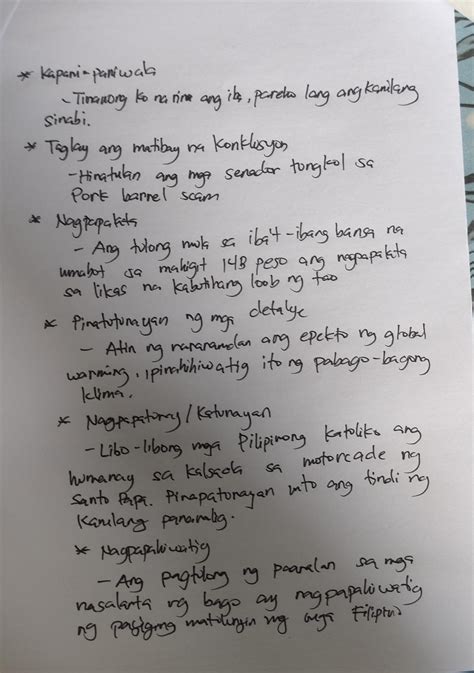 * Kapani-paniwala
- Tinanong ko na rin ang iba, pareho lang ang kanilang
sinabi.
* Taglay ang matibay na konklusyon
- Hinatulan ang mga senador tungkol sa
Pork barrel scam
* Nagpapakita
- Ang tulong mula sa iba't-ibang bansa na
umabot sa mahigit 14B peso ang nagpapakita
sa likas na kabutihang loob ng tao
* Pinatutunayan ng mga detalye
- Atin ng nararamdan ang epekto ng global
warming, ipinahihiwatig ito ng pabago-bagong
klima.
* Nagpapatunay/Katunayan
- Libo-libong mga Pilipinong katoliko ang
humanay sa kalsada sa motorcade ng
Santo Papa. Pinapatunayan nito ang tindi ng
kanilang
* Nagpapahiwatig
- Ang pagtulong ng paaralan sa mga
nasalanta ng bagyo ay nagpapahiwatig
ng pagiging matulungin ng mga